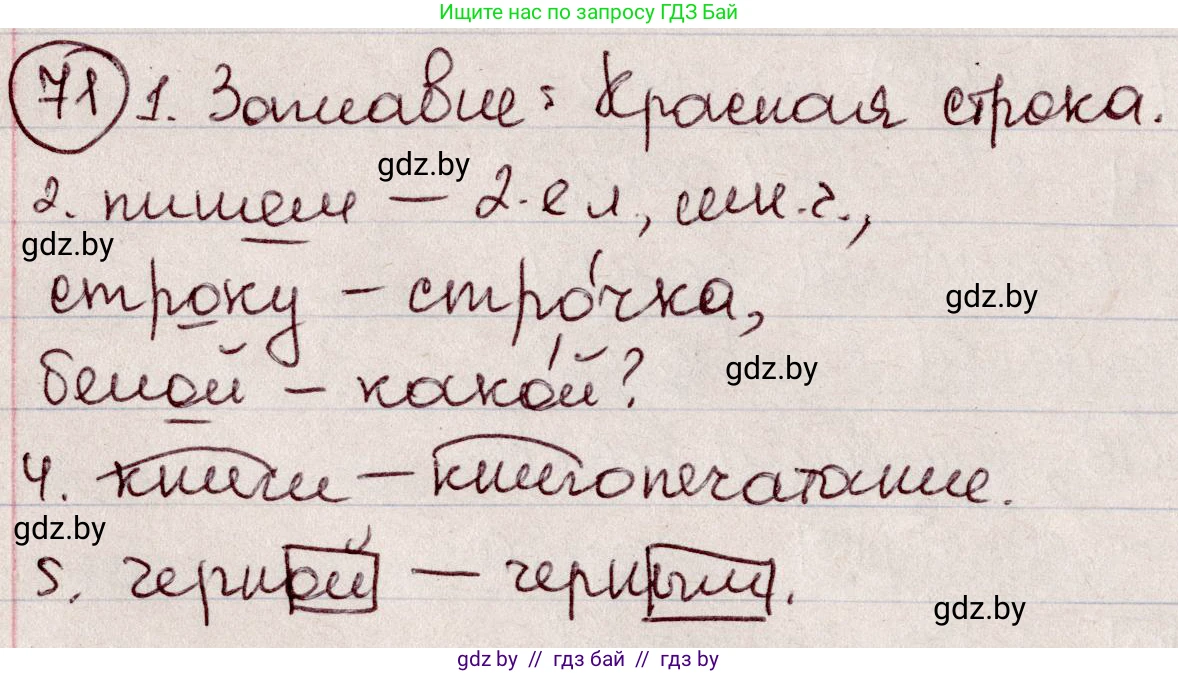 Ищите нас по запросу ГДЗ Бай
71 1. Заглавие: Красная строка.
gdz.by
2. пишем — 2-е л, мн.ч.,
gdz.by
строку – стро́чка,
gdz.by
белой – како́й?
gdz.by
4. книги – книгопечатание.
gdz.by
5. черной — черным.
gdz.by
gdz by // гдз бай // гдз by